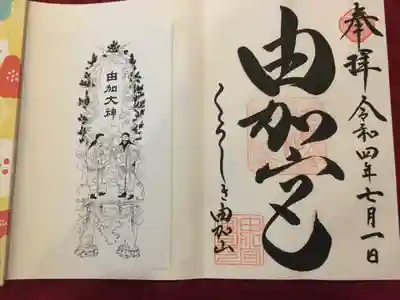 奉拝
令和四年七月一日
由加宮
くらしき由加山
由加大神